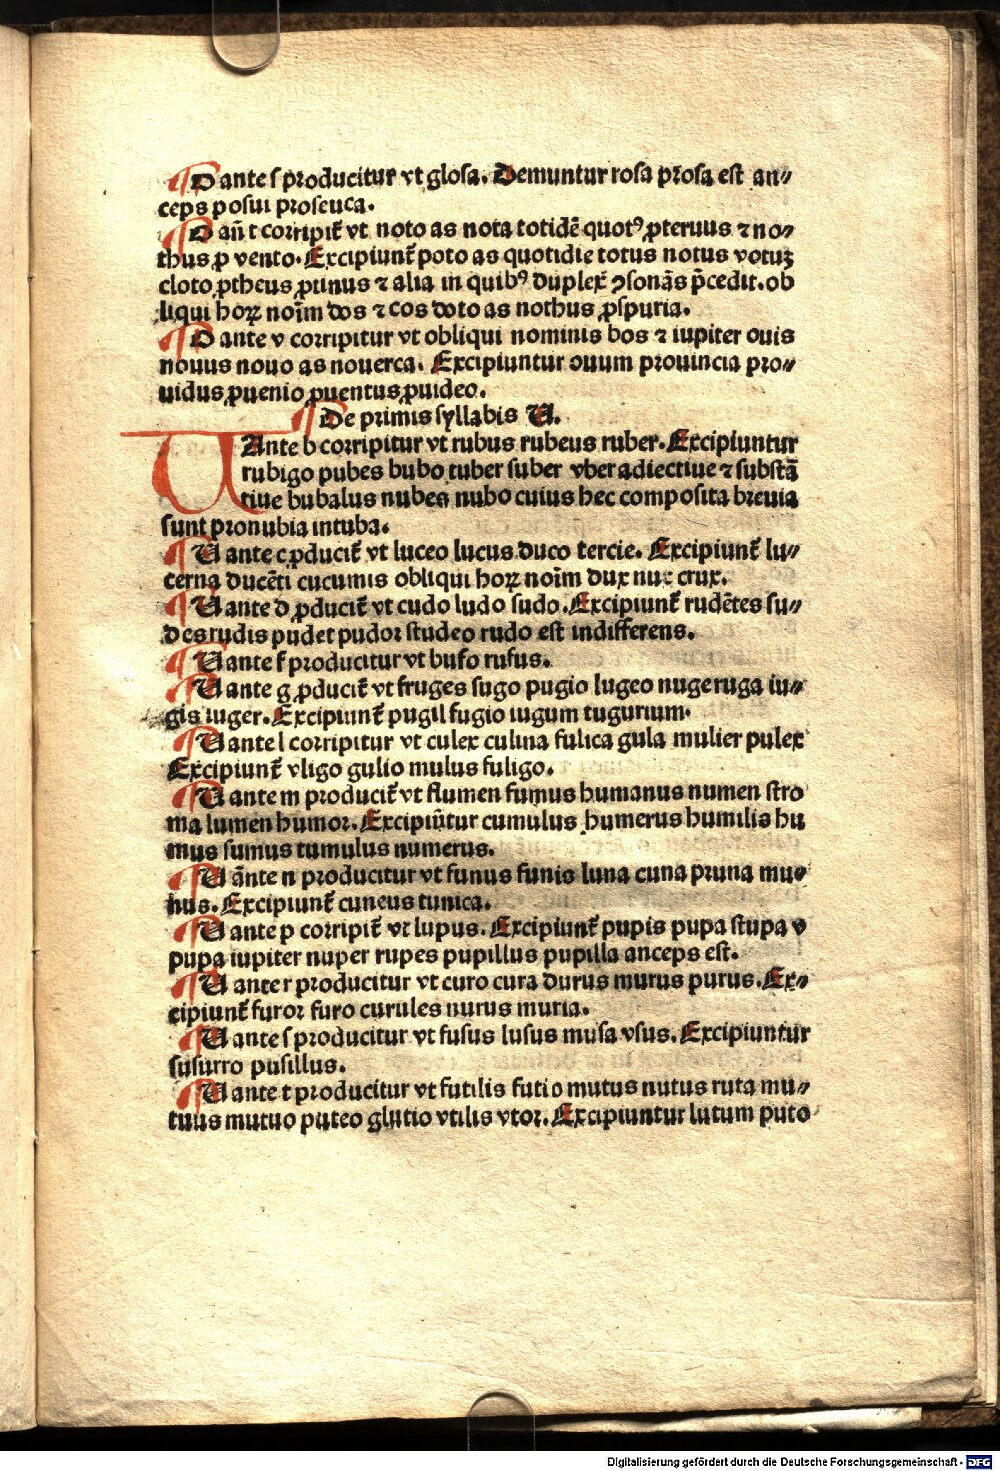 ¶ O ante s producitur vt glosa. Demuntur rosa prosa est an⸗
ceps posui proseuca.
¶ O an̄ t corripit̄ vt noto as nota totidē quotꝰ ꝓteruus ⁊ no⸗
thus ꝓ vento. Excipiunt̄ poto as quotidie totus notus votuꝫ
cloto ꝓtheus ꝓtinus ⁊ alia in quibꝰ duplex̄ ꝯsonās p̄cedit. ob
liqui hoꝝ noīm dos ⁊ cos doto as nothus ꝓspuria.
¶ O ante v corripitur vt obliqui nominis bos ⁊ iupiter ouis
nouus nouo as nouerca. Excipiuntur ouum prouincia pro⸗
uidus ꝓuenio ꝓuentus ꝓuideo.
¶ De primis syllabis U.
U Ante b corripitur vt rubus rubeus ruber. Excipiuntur
rubigo pubes bubo tuber suber vber adiectiue ⁊ substā
tiue bubalus nubes nubo cuius hec composita breuia
sunt pronubia intuba.
¶ U ante c ꝓducit̄ vt luceo lucus duco tercie. Excipiunt̄ lu⸗
cerna ducēti cucumis obliqui hoꝝ noīm dux nux crux.
¶ U ante d ꝓducit̄ vt cudo ludo sudo. Excipiunt̄ rudētes su⸗
des rudis pudet pudor studeo rudo est indifferens.
¶ U ante f producitur vt bufo rufus.
¶ U ante g ꝓducit̄ vt fruges sugo pugio lugeo nuge ruga iu⸗
gis iuger. Excipiunt̄ pugil fugio iugum tugurium.
¶ U ante l corripitur vt culex culina fulica gula mulier pulex
Excipiunt̄ vligo gulio mulus fuligo.
¶ U ante m producit̄ vt flumen fumus humanus numen stro
ma lumen humor. Excipiūtur cumulus humerus humilis hu
mus sumus tumulus numerus.
¶ U ānte n producitur vt funus funis luna cuna pruna mu⸗
nus. Excipiunt̄ cuneus tunica.
¶ U ante p corripit̄ vt lupus. Excipiunt̄ pupis pupa stupa v
pupa iupiter nuper rupes pupillus pupilla anceps est.
¶ U ante r producitur vt curo cura durus murus purus. Ex⸗
cipiunt̄ furor furo curules nurus muria.
¶ U ante s producitur vt fusus lusus musa vsus. Excipiuntur
susurro pusillus.
¶ U ante t producitur vt futilis futio mutus nutus ruta mu⸗
tuus mutuo puteo glutio vtilis vtor. Excipiuntur lutum puto
Digitalisierung gefördert durch die Deutsche Forschungsgemeinschaft - DFG